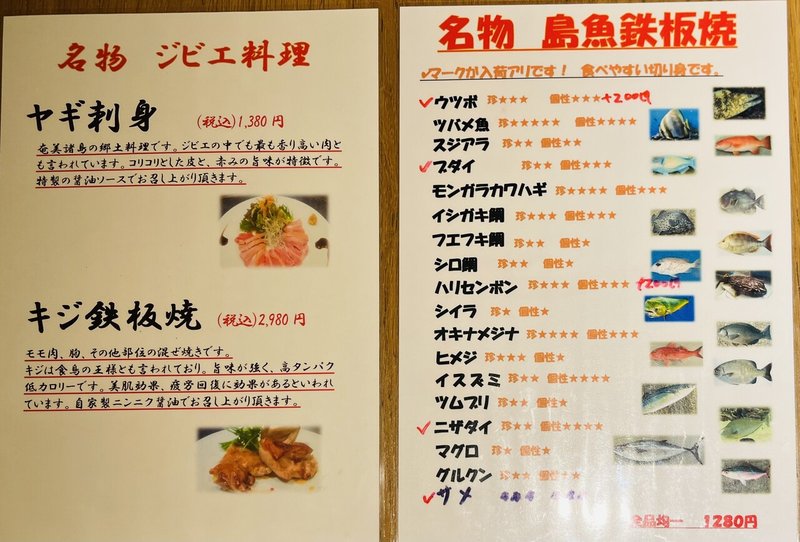 名物 ジビエ料理
ヤギ刺身 (税込)1,380円
奄美諸島の郷土料理です。ジビエの中でも最も香り高い肉と
も言われています。コリコリとした皮と、赤みの旨味が特徴です。
特製の醤油ソースでお召し上がり頂きます。
キジ鉄板焼 (税込)2,980円
モモ肉、胸、その他部位の混ぜ焼きです。
キジは食鳥の王様とも言われており。旨味が強く、高タンパク
低カロリーです。美肌効果、疲労回復に効果があるといわれ
ています。自家製ニンニク醤油でお召し上がり頂きます。
名物 島魚鉄板焼
✓マークが入荷アリです! 食べやすい切り身です。
✓ウツボ 珍★★★ 個性★★★+200円
ツバメ魚 珍★★★★★ 個性★★★★
スジアラ 珍★★ 個性★★
✓ブダイ 珍★★ 個性★★
モンガラカワハギ 珍★★★★ 個性★★★★
イシガキ鯛 珍★★★ 個性★★★
フエフキ鯛 珍★★ 個性★
シロ鯛 珍★★ 個性★
ハリセンボン 珍★★★ 個性★★★★ +200円
シイラ 珍★ 個性★
オキナメジナ 珍★★★★ 個性★★★★
ヒメジ 珍★★★ 個性★★
イスズミ 珍★★★ 個性★★★★
ツムブリ 珍★★ 個性★
✓ニザダイ 珍★★ 個性★★★★
マグロ 珍★ 個性★
グルクン 珍★ 個性★★
✓サメ
全品均一 1280円